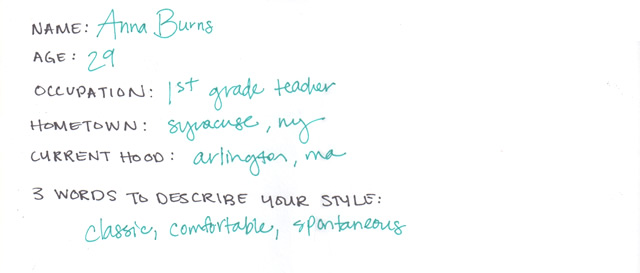 NAME: Anna Burns
AGE: 29
OCCUPATION: 1st grade teacher
HOMETOWN: syracuse, ny
CURRENT HOOD: arlington, ma
3 WORDS TO DESCRIBE YOUR STYLE:
classic, comfortable, spontaneous